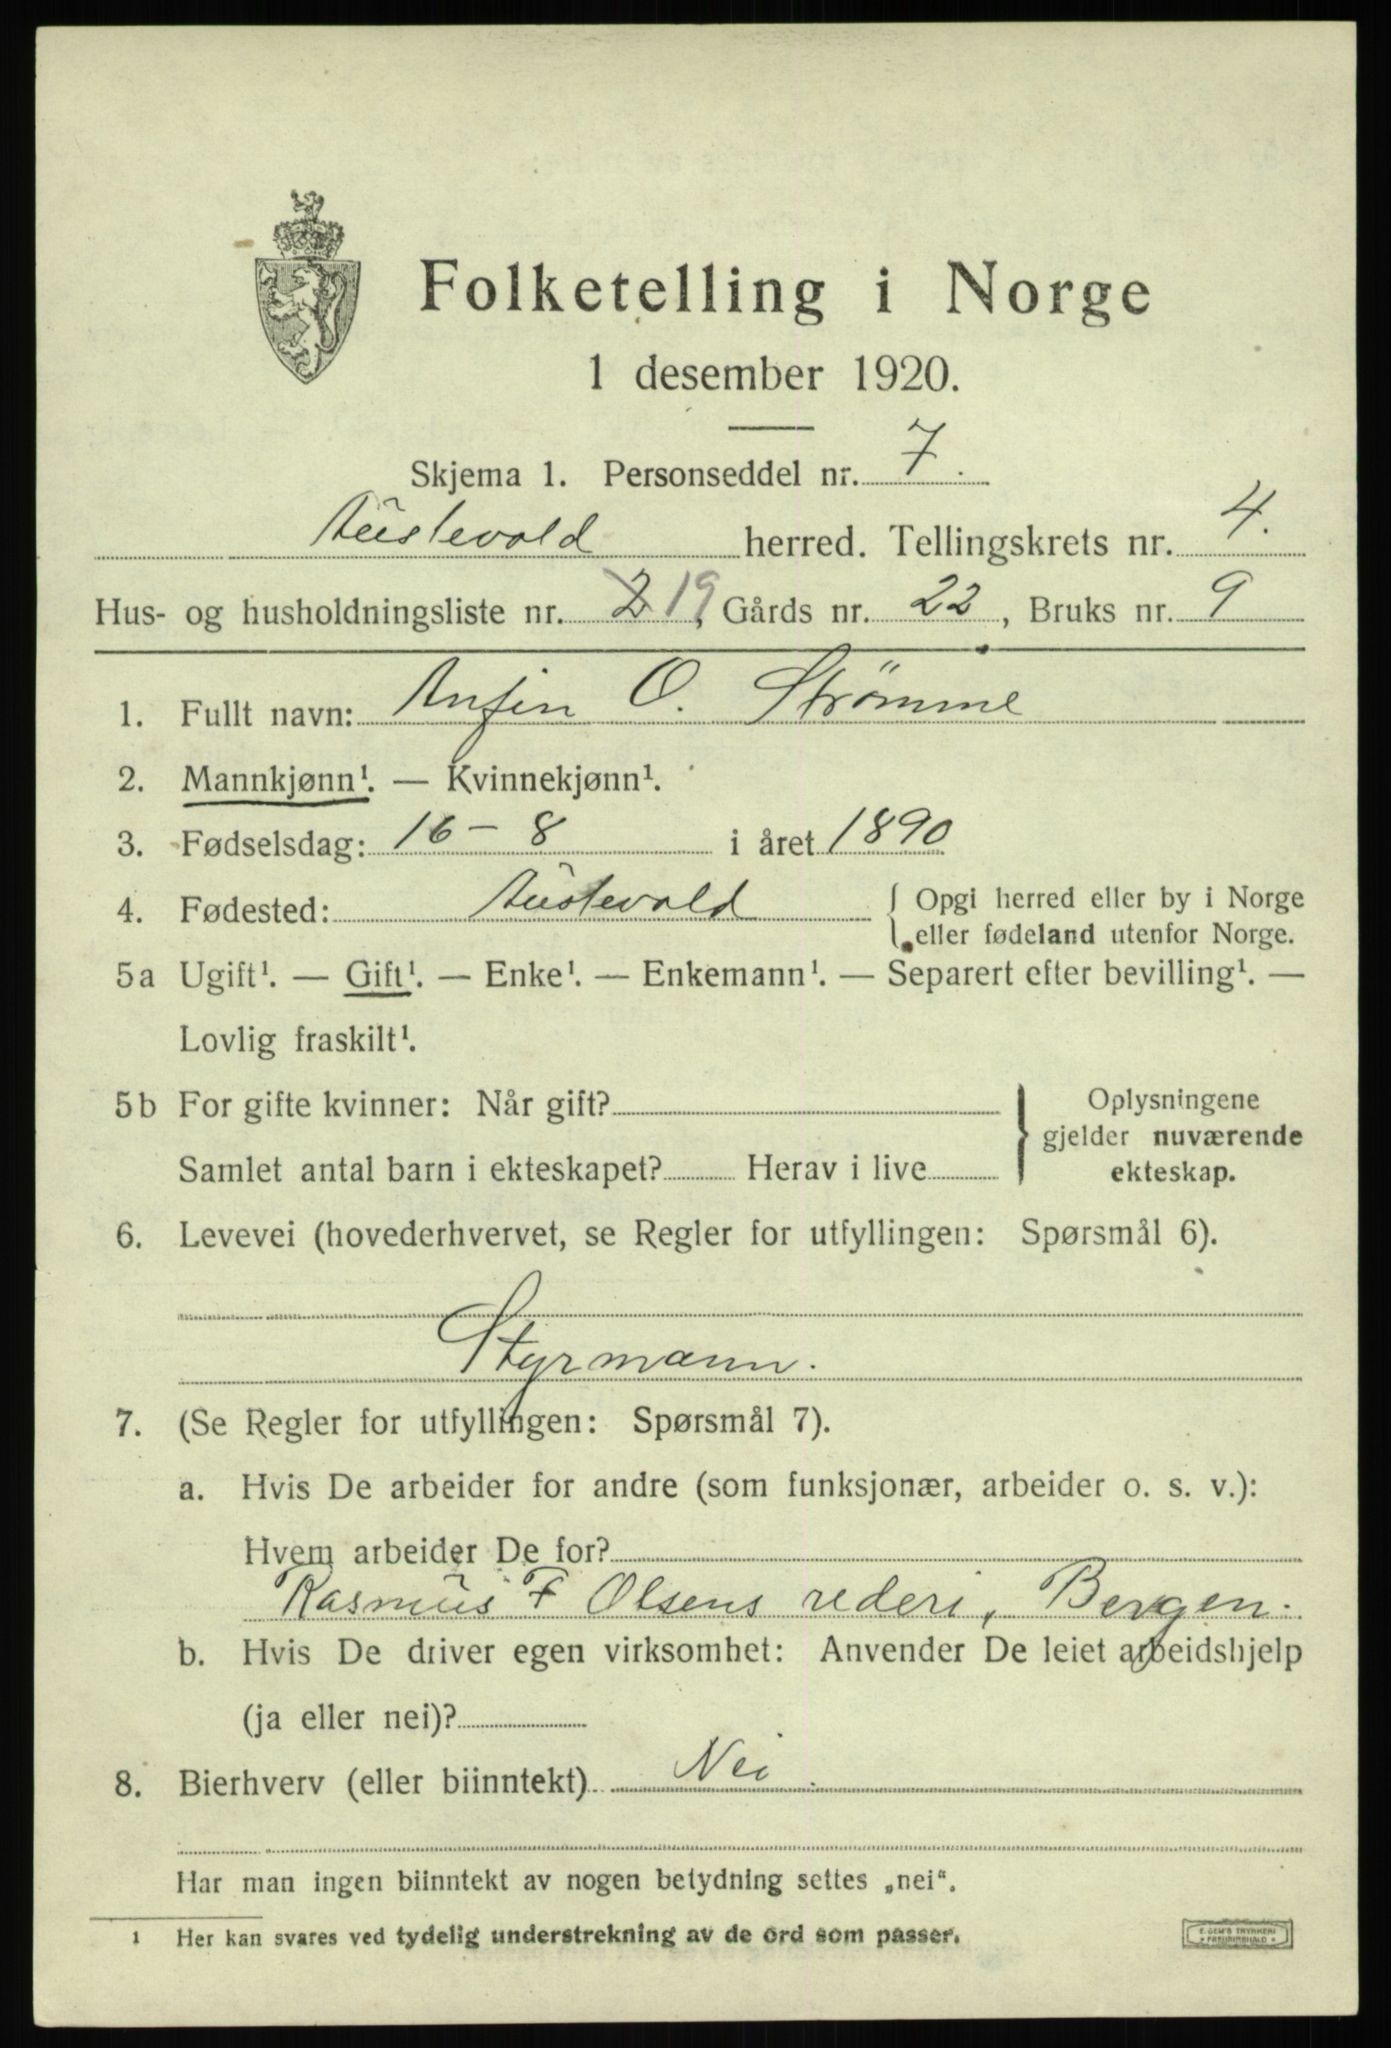 Folketelling i Norge
1 desember 1920.
Skjema 1. Personseddel nr. 7.
Austevold herred. Tellingskrets nr. 4.
Hus- og husholdningsliste nr. 2 19, Gårds nr. 22, Bruks nr. 9
1. Fullt navn: Anfin O. Strömme
2. Mannkjønn¹. — Kvinnekjønn¹.
3. Fødselsdag: 16 – 8 i året 1890
4. Fødested: Austevold { Opgi herred eller by i Norge
eller fødeland utenfor Norge.
5a Ugift¹. — Gift¹. — Enke¹. — Enkemann¹. — Separert efter bevilling¹. —
Lovlig fraskilt¹.
5b For gifte kvinner: Når gift? } Oplysningene
gjelder nuværende
Samlet antal barn i ekteskapet? Herav i live ekteskap.
6. Levevei (hovederhvervet, se Regler for utfyllingen: Spørsmål 6).
Styrmann.
7. (Se Regler for utfyllingen: Spørsmål 7).
a. Hvis De arbeider for andre (som funksjonær, arbeider o. s. v.):
Hvem arbeider De for?
Rasmus F Olsens rederi, Bergen.
b. Hvis De driver egen virksomhet: Anvender De leiet arbeidshjelp
(ja eller nei)?
8. Bierhverv (eller biinntekt) Nei.
Har man ingen biinntekt av nogen betydning settes „nei“.
1 Her kan svares ved tydelig understrekning av de ord som passer.